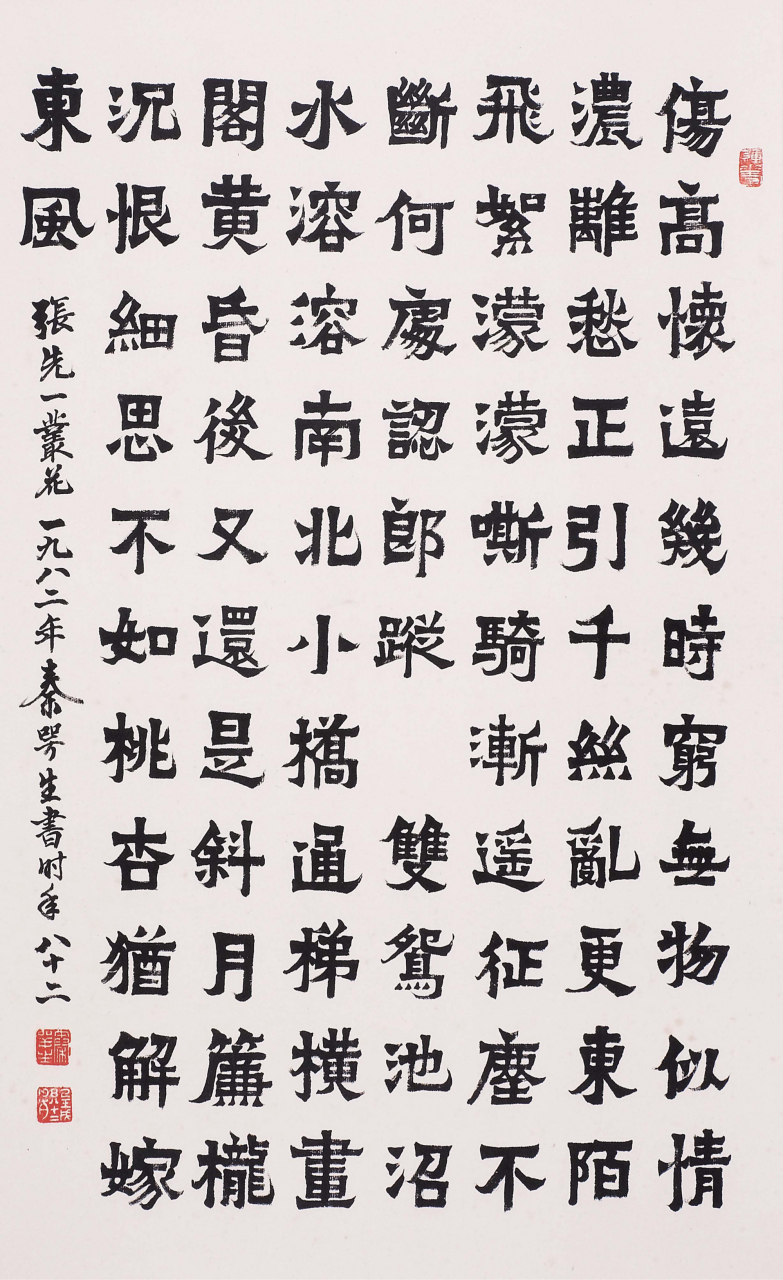 傷高懷遠幾時窮無物似情
濃離愁正引千絲亂更東陌
飛絮濛濛嘶騎漸遥征塵不
斷何處認郎蹤　雙鴛池沼
水溶溶南北小橋通梯橫畫
閣黄昏後又還是斜月簾櫳
沉恨細思不如桃杏猶解嫁
東風
張先一叢花 一九八二年秦咢生書时年八十二